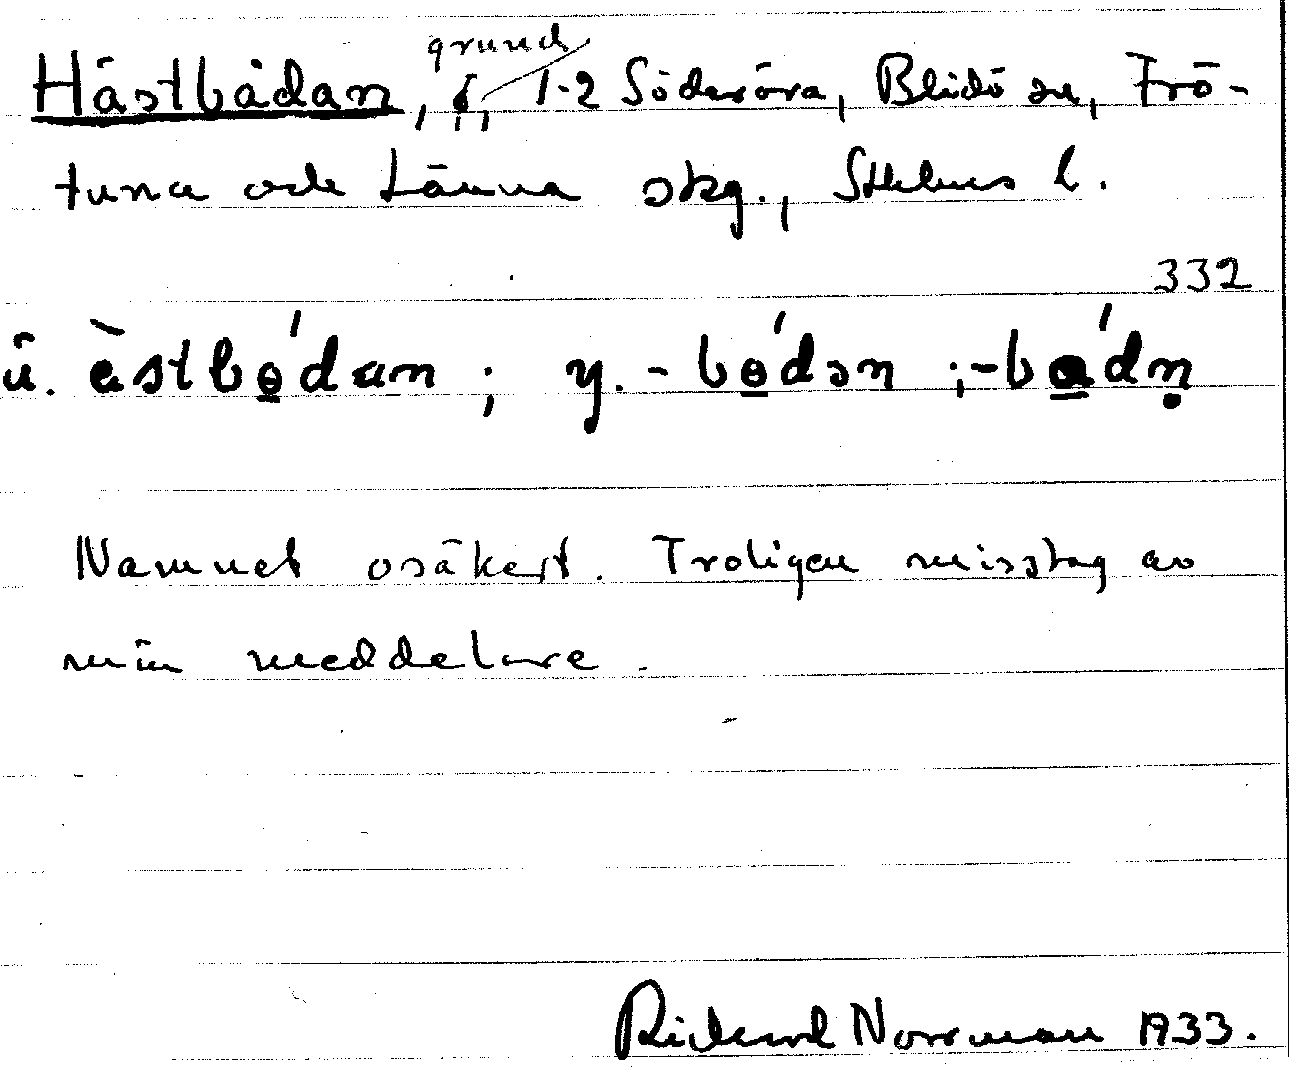 Hästbådan, grund, 1-2 Söderöra, Blidö sn, Frö-
tuna och Länna skg., Sthlms l.
332
ü. ästbo̲dan ; y. - bo̲dən ; - ba̲dṇ
Namnet osäkert. Troligen misstag av
min meddelare.
Rickard Norrman 1933.